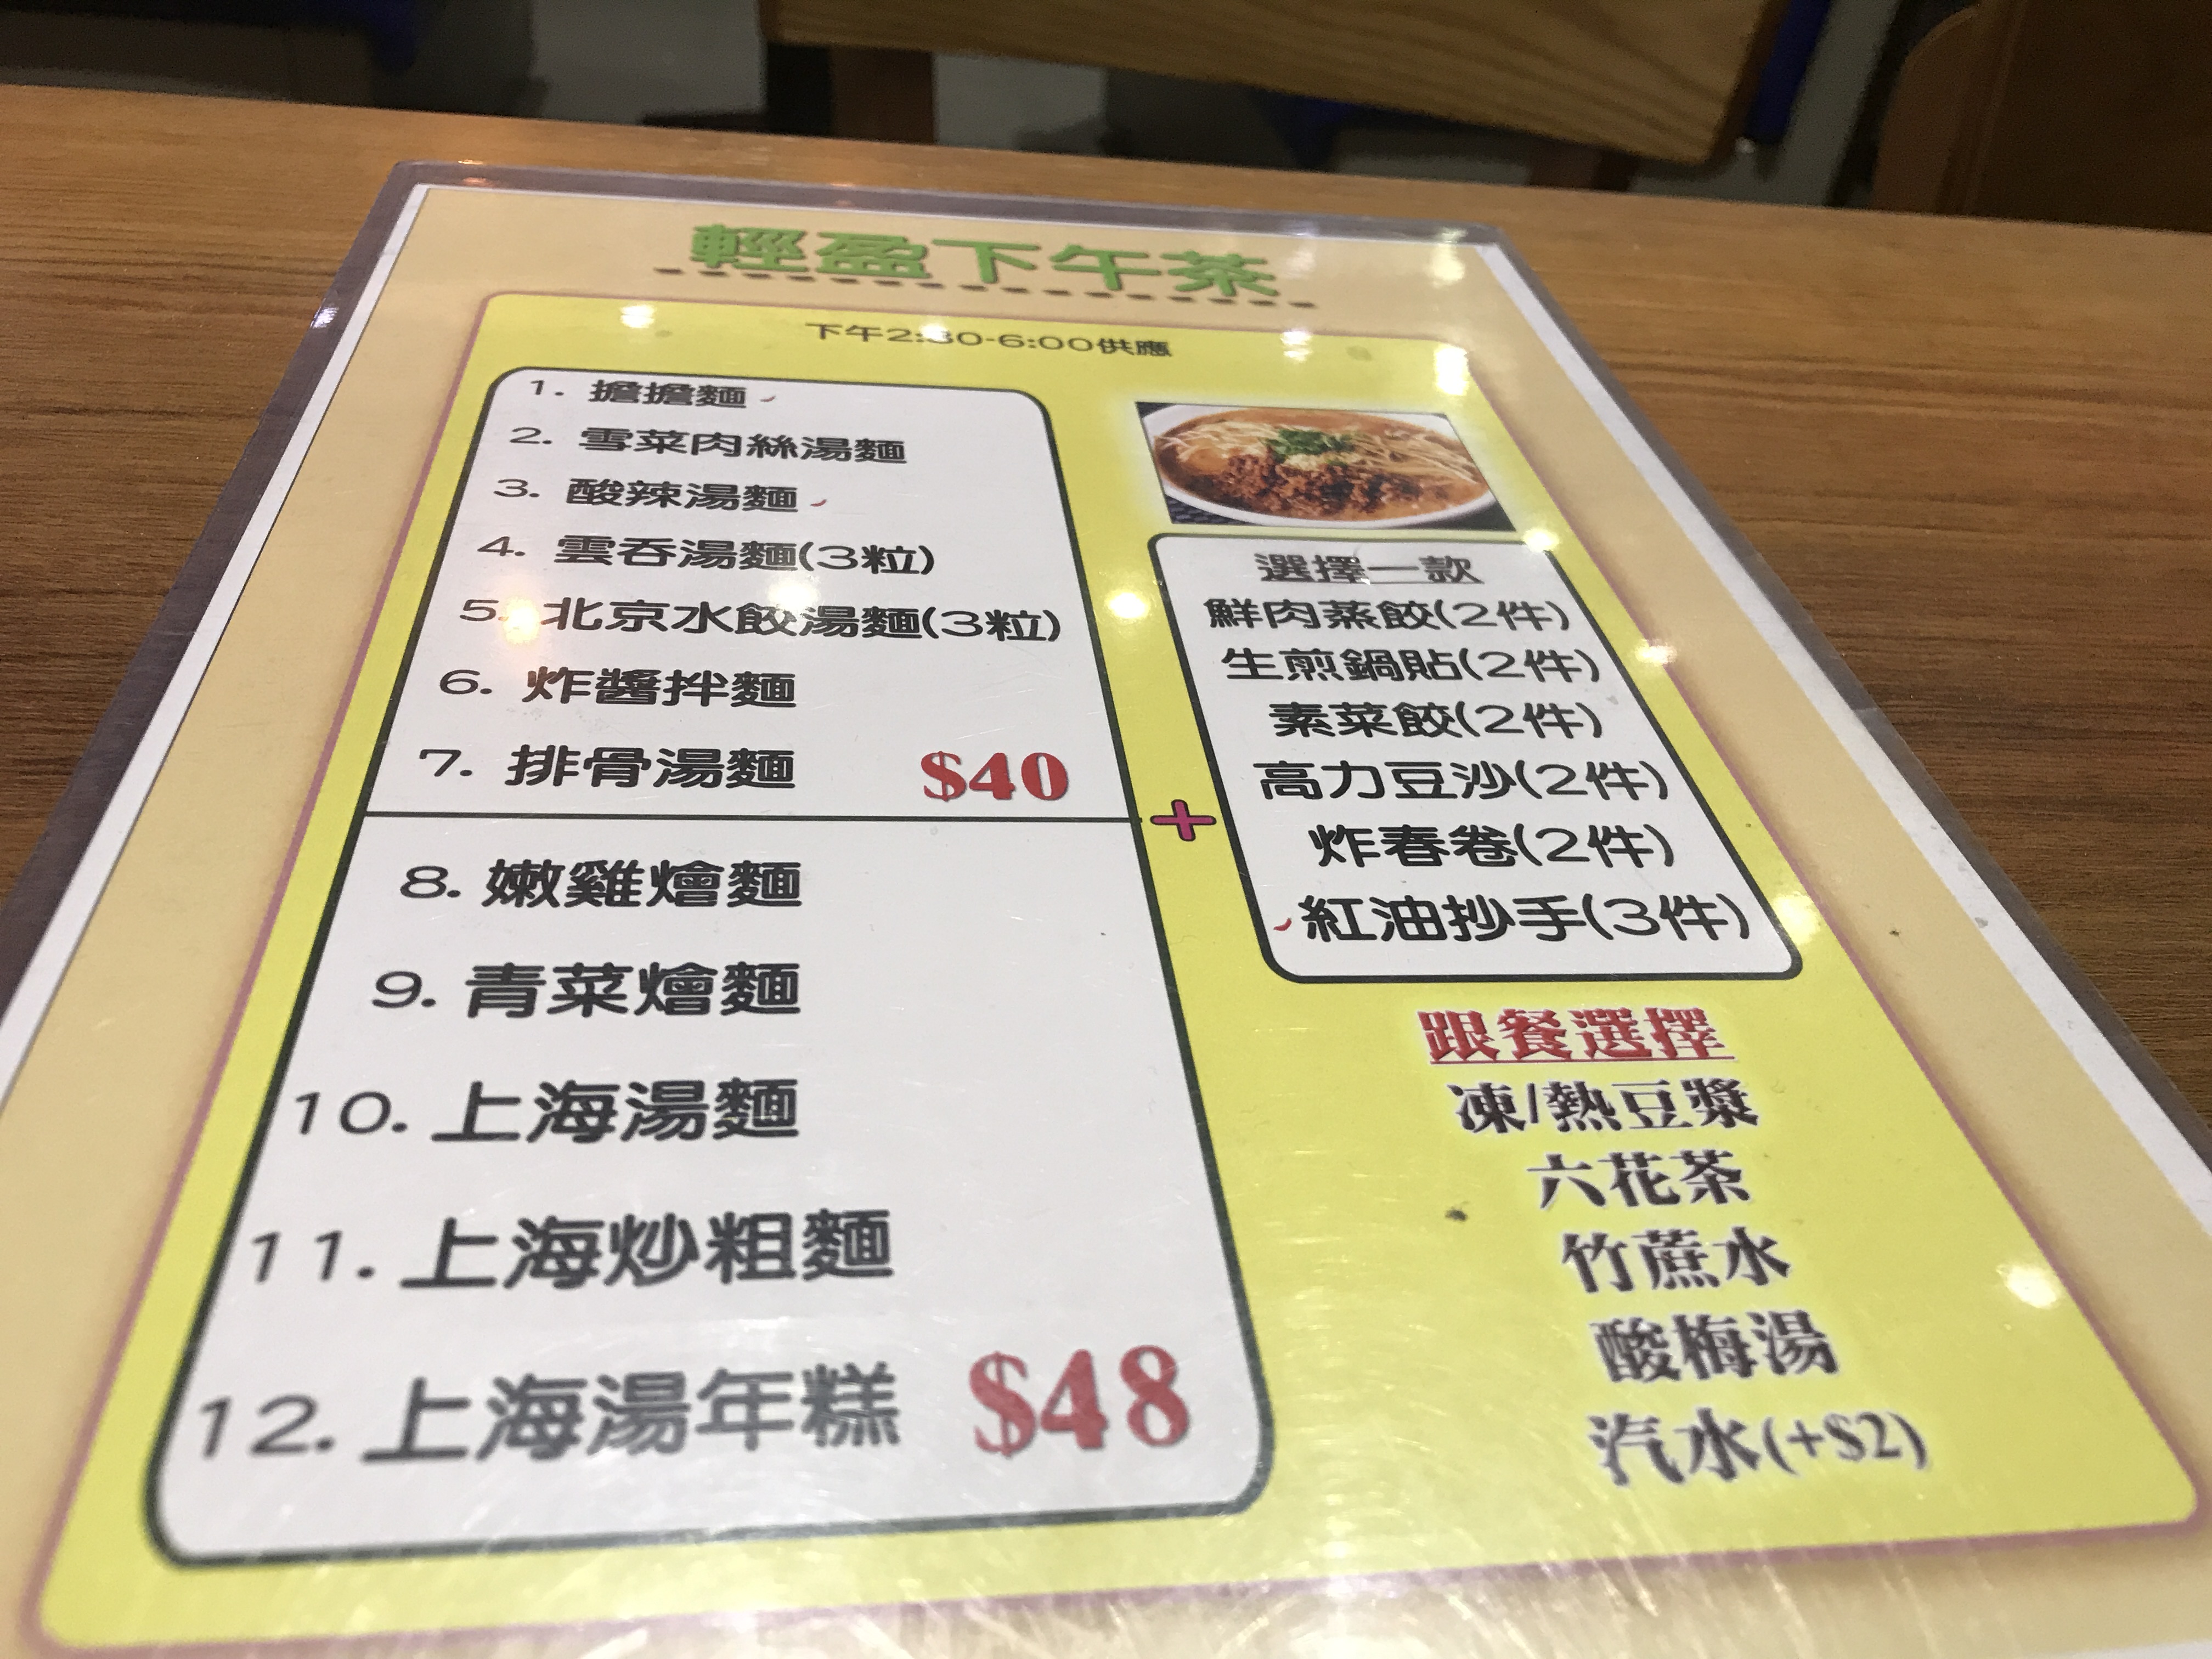 輕盈下午茶
下午2:30-6:00供應
1. 擔擔麵
2. 雪菜肉絲湯麵
3. 酸辣湯麵
4. 雲吞湯麵(3粒)
5. 北京水餃湯麵(3粒)
6. 炸醬拌麵
7. 排骨湯麵 $40
8. 嫩雞燴麵
9. 青菜燴麵
10. 上海湯麵
11. 上海炒粗麵
12. 上海湯年糕 $48
+
選擇一款
鮮肉蒸餃(2件)
生煎鍋貼(2件)
素菜餃(2件)
高力豆沙(2件)
炸春卷(2件)
紅油抄手(3件)
跟餐選擇
凍/熱豆漿
六花茶
竹蔗水
酸梅湯
汽水(+$2)